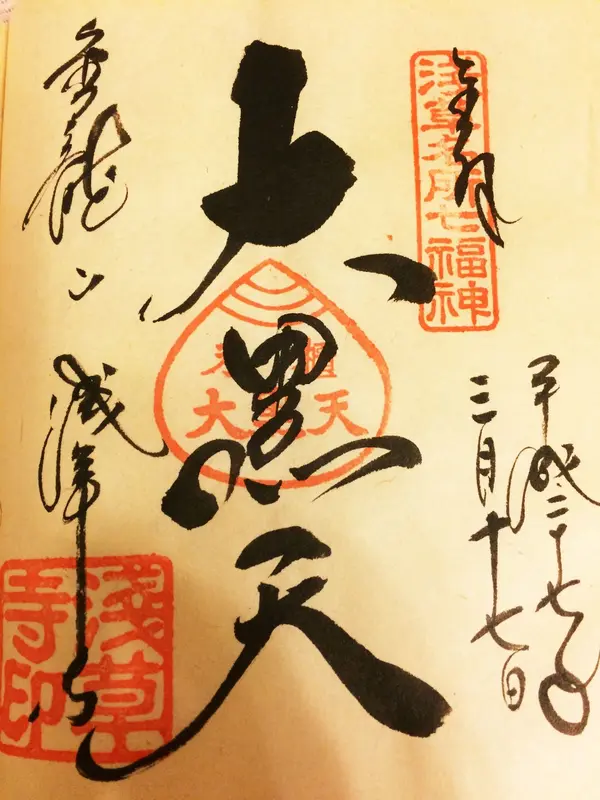 奉拝
浅草名所七福神
平成二十七年
三月十七日
大黒天
大 天
金龍山
浅草寺
淺草
寺印